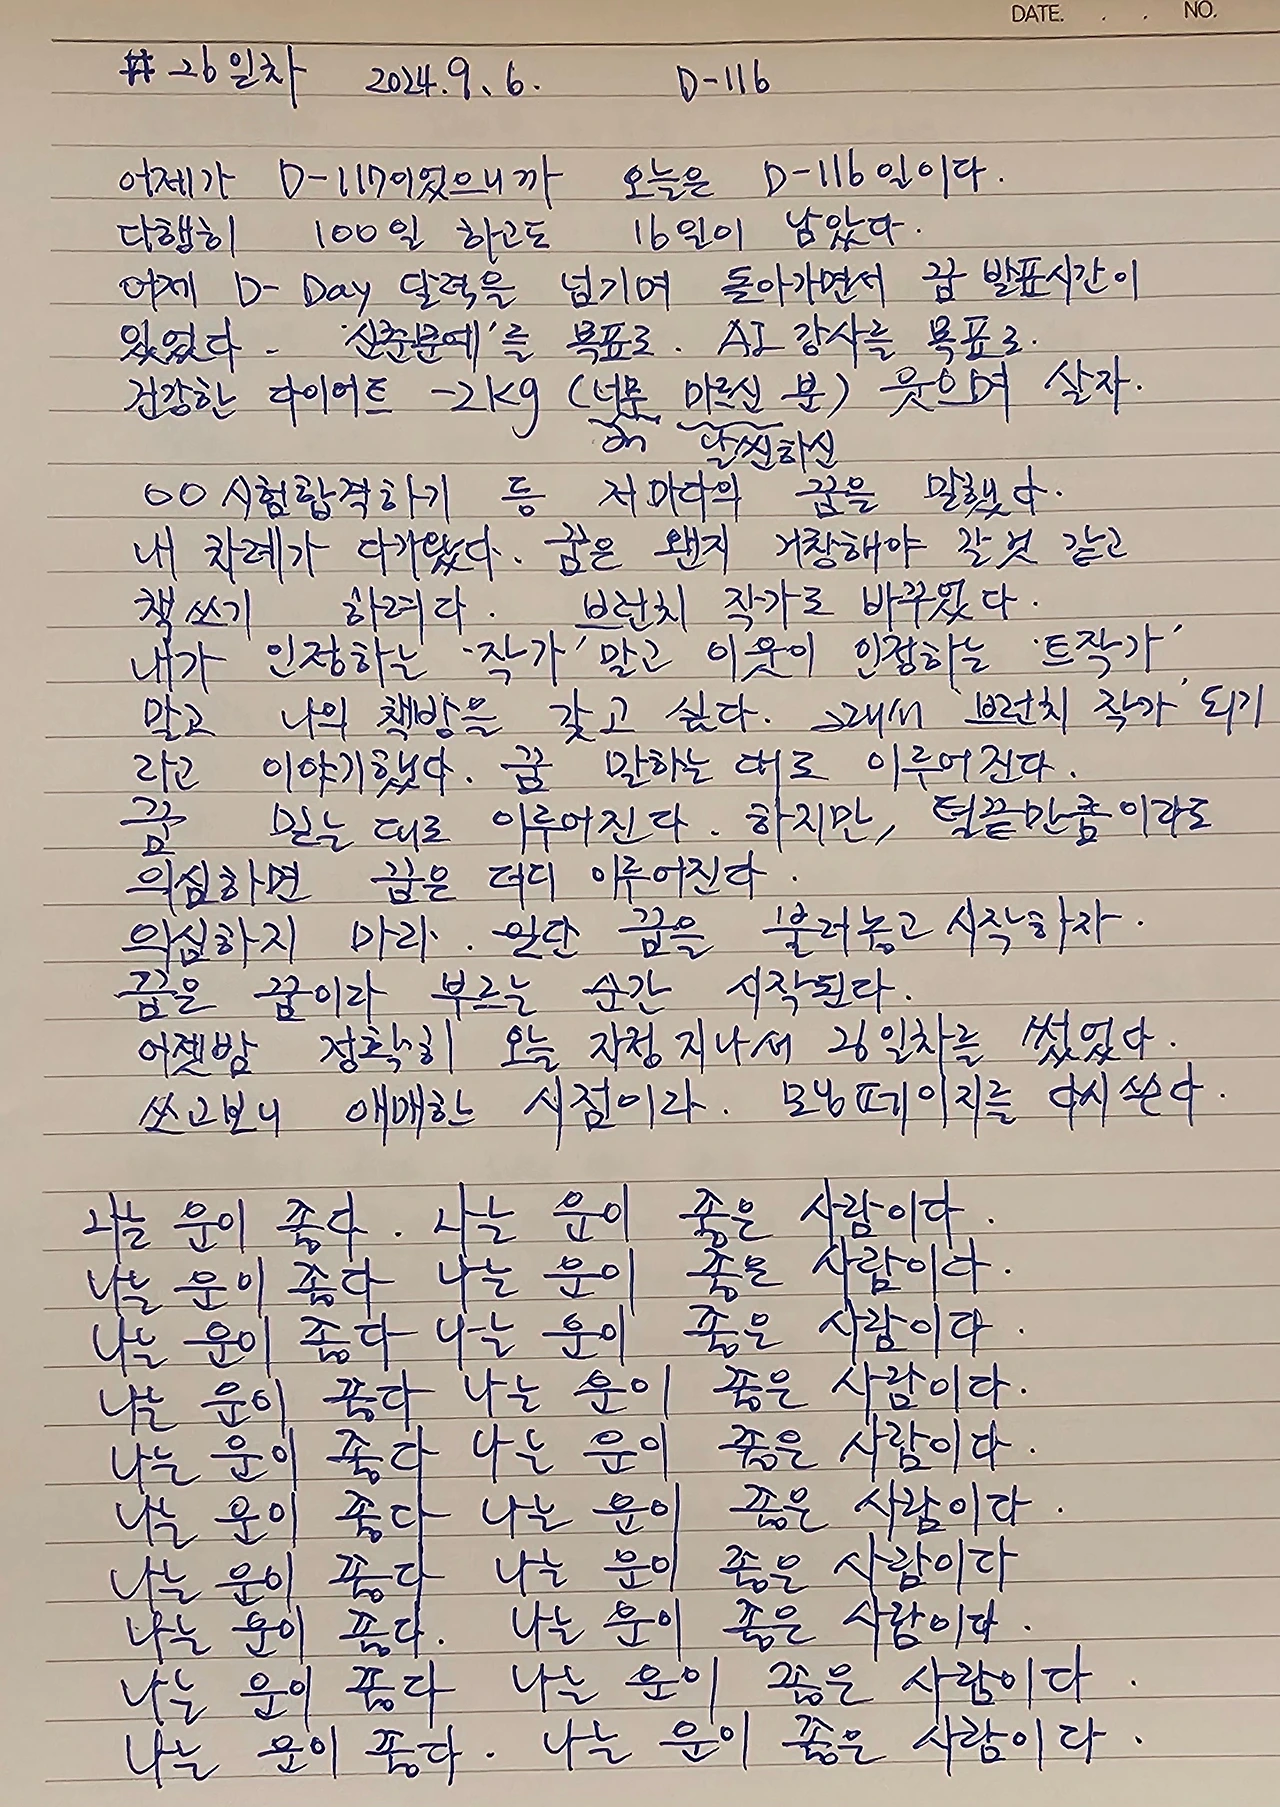 DATE. . . NO.
# 26일차 2024.9.6. D-116
어제가 D-117이었으니까 오늘은 D-116일이다.
다행히 100일 하고도 16일이 남았다.
어제 D-Day 달력을 넘기며 돌아가면서 꿈 발표시간이
있었다. '신춘문예'를 목표로. AI 강사를 목표로.
건강한 다이어트 -2kg (너무 마르신 분) 웃으며 살자.
날씬하신
OO시험합격하기 등 저마다의 꿈을 말했다.
내 차례가 다가왔다. 꿈은 왠지 거창해야 할것 같고
책쓰기 하려다. 브런치 작가로 바꾸었다.
내가 인정하는 '작가' 말고 이웃이 인정하는 '트작가'
말고 나의 책방을 갖고 싶다. 그래서 '브런치 작가' 되기
라고 이야기했다. 꿈 말하는 대로 이루어진다.
꿈 믿는 대로 이루어진다. 하지만, 털끝만큼이라도
의심하면 꿈은 더디 이루어진다.
의심하지 마라. 일단 꿈을 불러놓고 시작하자.
꿈은 꿈이라 부르는 순간 시작된다.
어젯밤 정확히 오늘 자정 지나서 26일차를 썼었다.
쓰고보니 애매한 시점이라. 모닝페이지를 다시 쓴다.
나는 운이 좋다. 나는 운이 좋은 사람이다.
나는 운이 좋다 나는 운이 좋은 사람이다.
나는 운이 좋다 나는 운이 좋은 사람이다.
나는 운이 좋다 나는 운이 좋은 사람이다.
나는 운이 좋다 나는 운이 좋은 사람이다.
나는 운이 좋다 나는 운이 좋은 사람이다.
나는 운이 좋다 나는 운이 좋은 사람이다
나는 운이 좋다. 나는 운이 좋은 사람이다.
나는 운이 좋다 나는 운이 좋은 사람이다.
나는 운이 좋다. 나는 운이 좋은 사람이다.